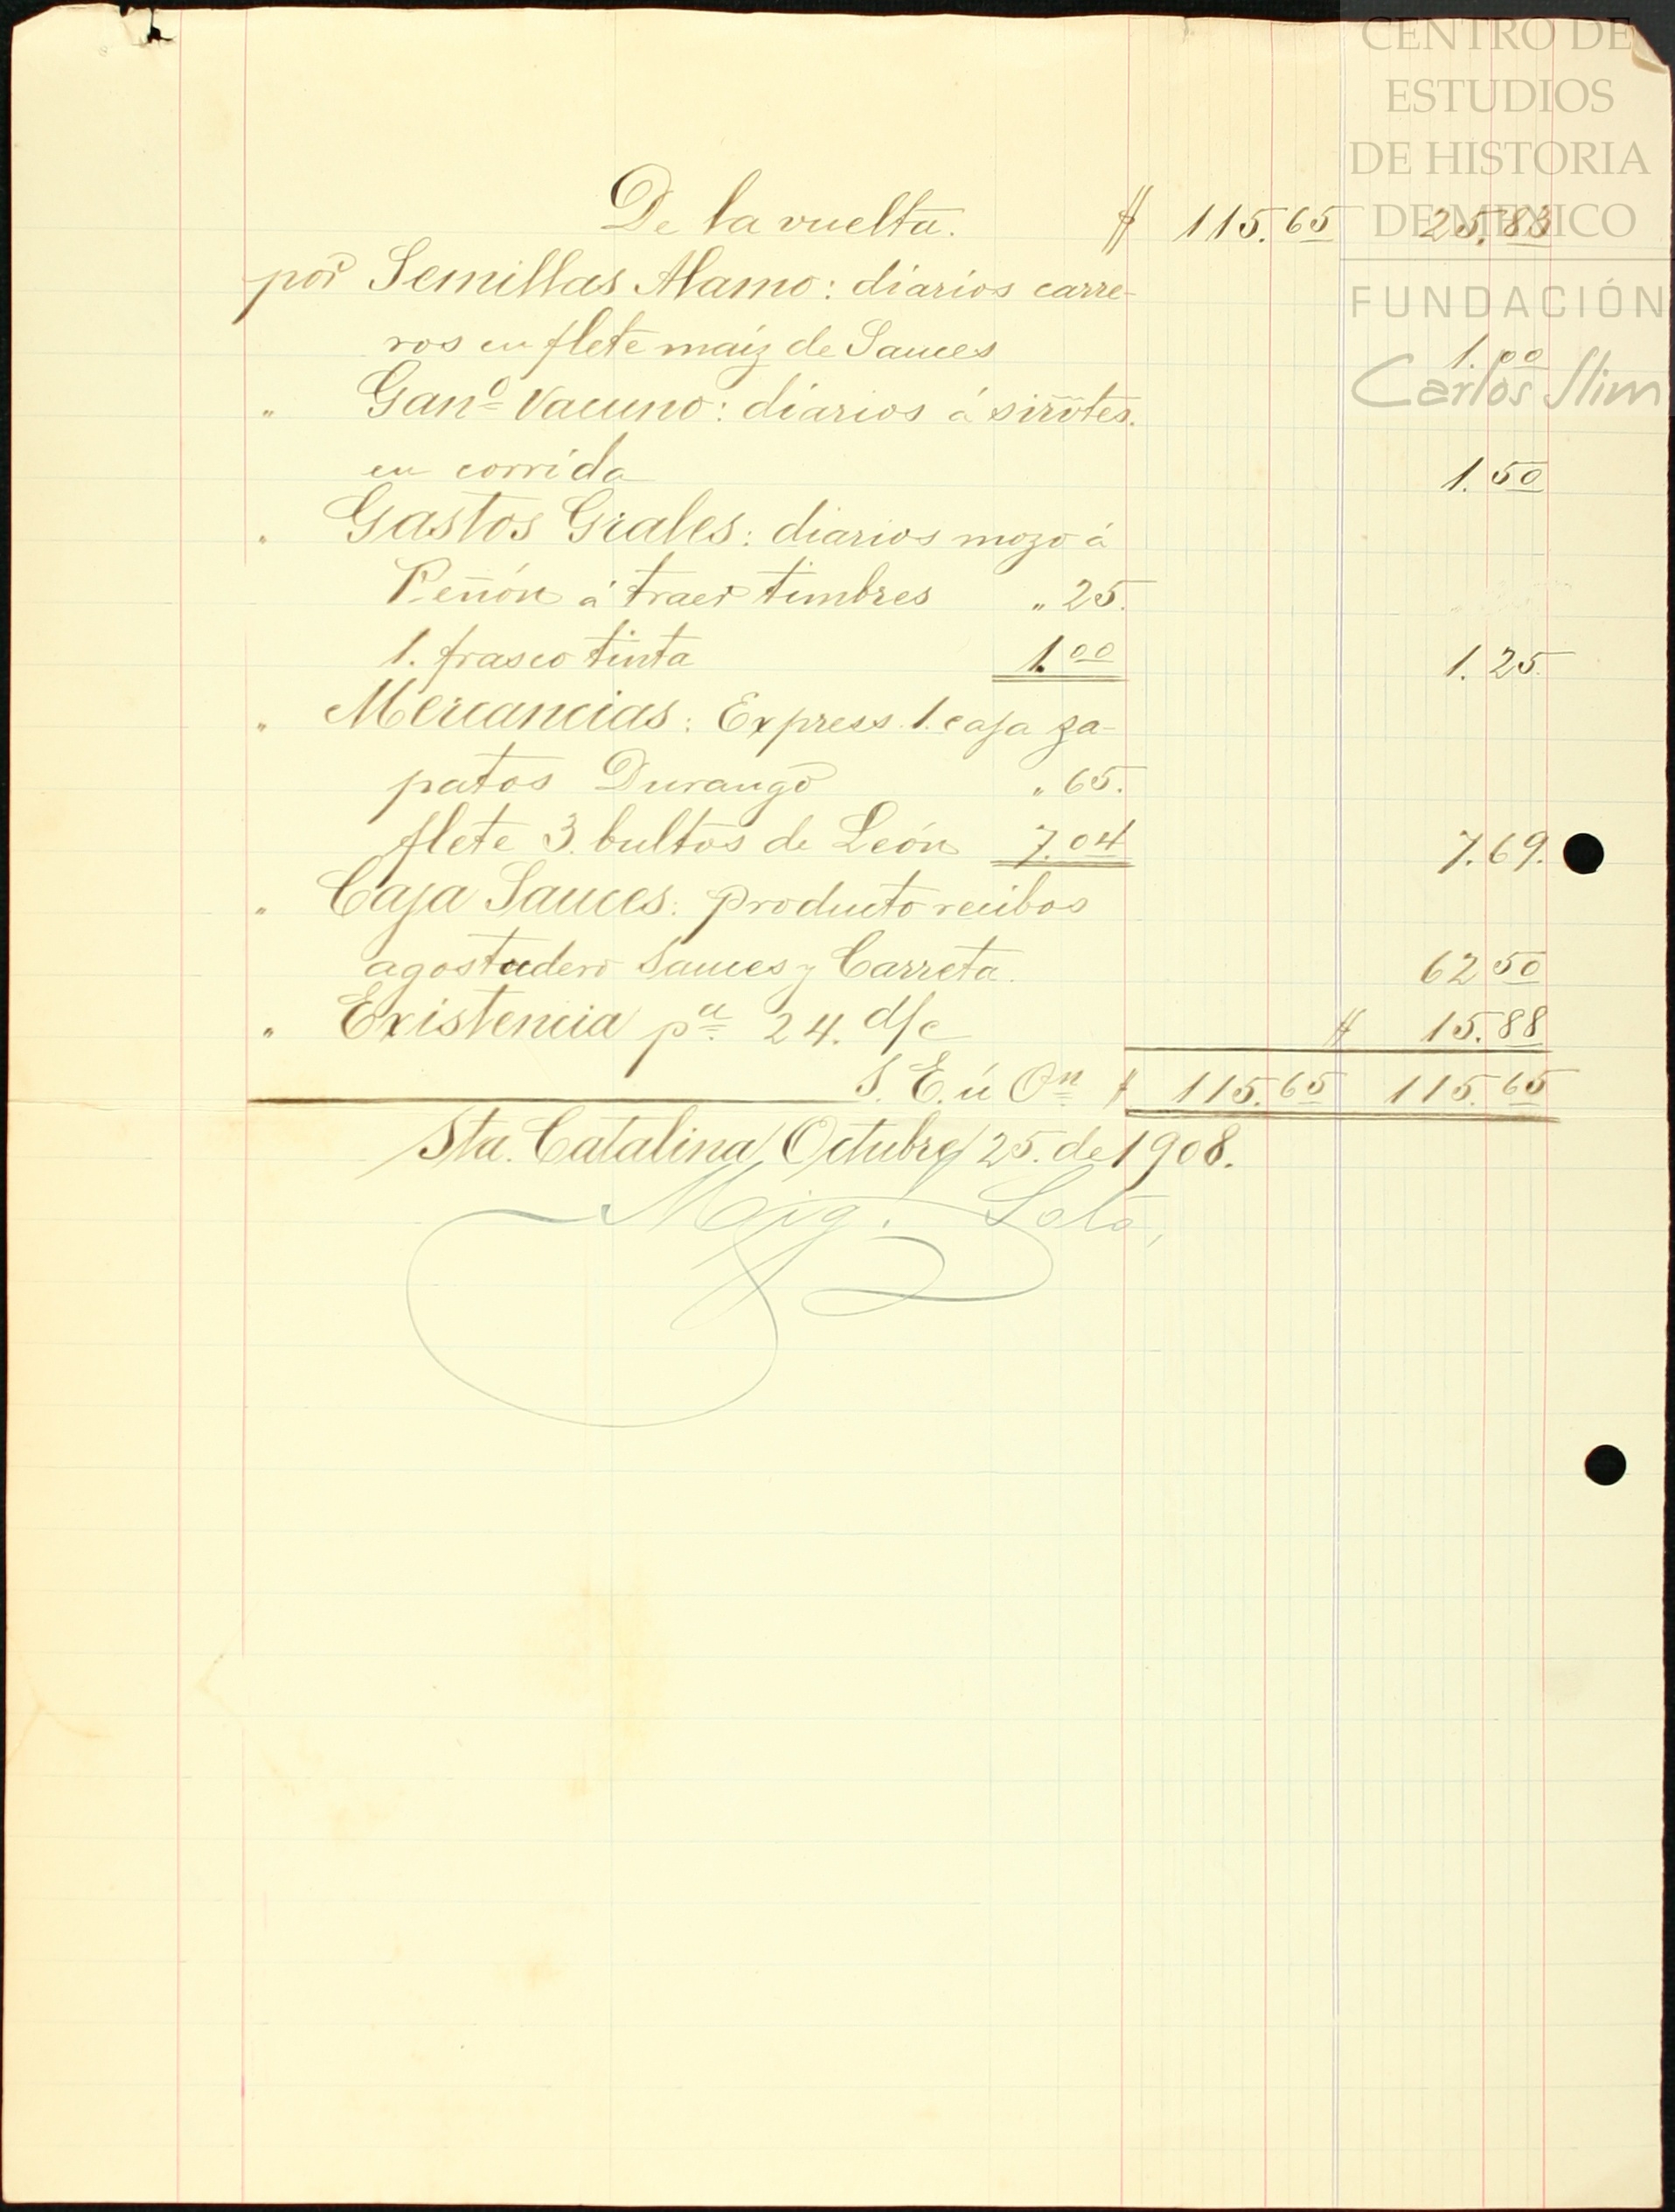 CENTRO DE
ESTUDIOS
DE HISTORIA
DE MEXICO
FUNDACIÓN
Carlos Slim
De la vuelta. $ 115.65 25.83
por Semillas Alamo: diarios carre-
ros en flete maiz de Sauces 1.00
" Gano Vacuno: diarios á sirvtes.
en corrida 1.50
" Gastos Grales: diarios mozo á
Peñón á traer timbres " 25.
1. frasco tinta 1.00 1.25.
" Mercancias: Express 1. caja za-
patos Durango " 65.
flete 3. bultos de León 7.04 7.69.
" Caja Sauces: producto recibos
agostadero Sauces y Carreta. 62 50
" Existencia pa 24. d/c $ 15.88
S. E. ú On $ 115.65 115.65
Sta. Catalina, Octubre 25. de 1908.
Mig. Soto,